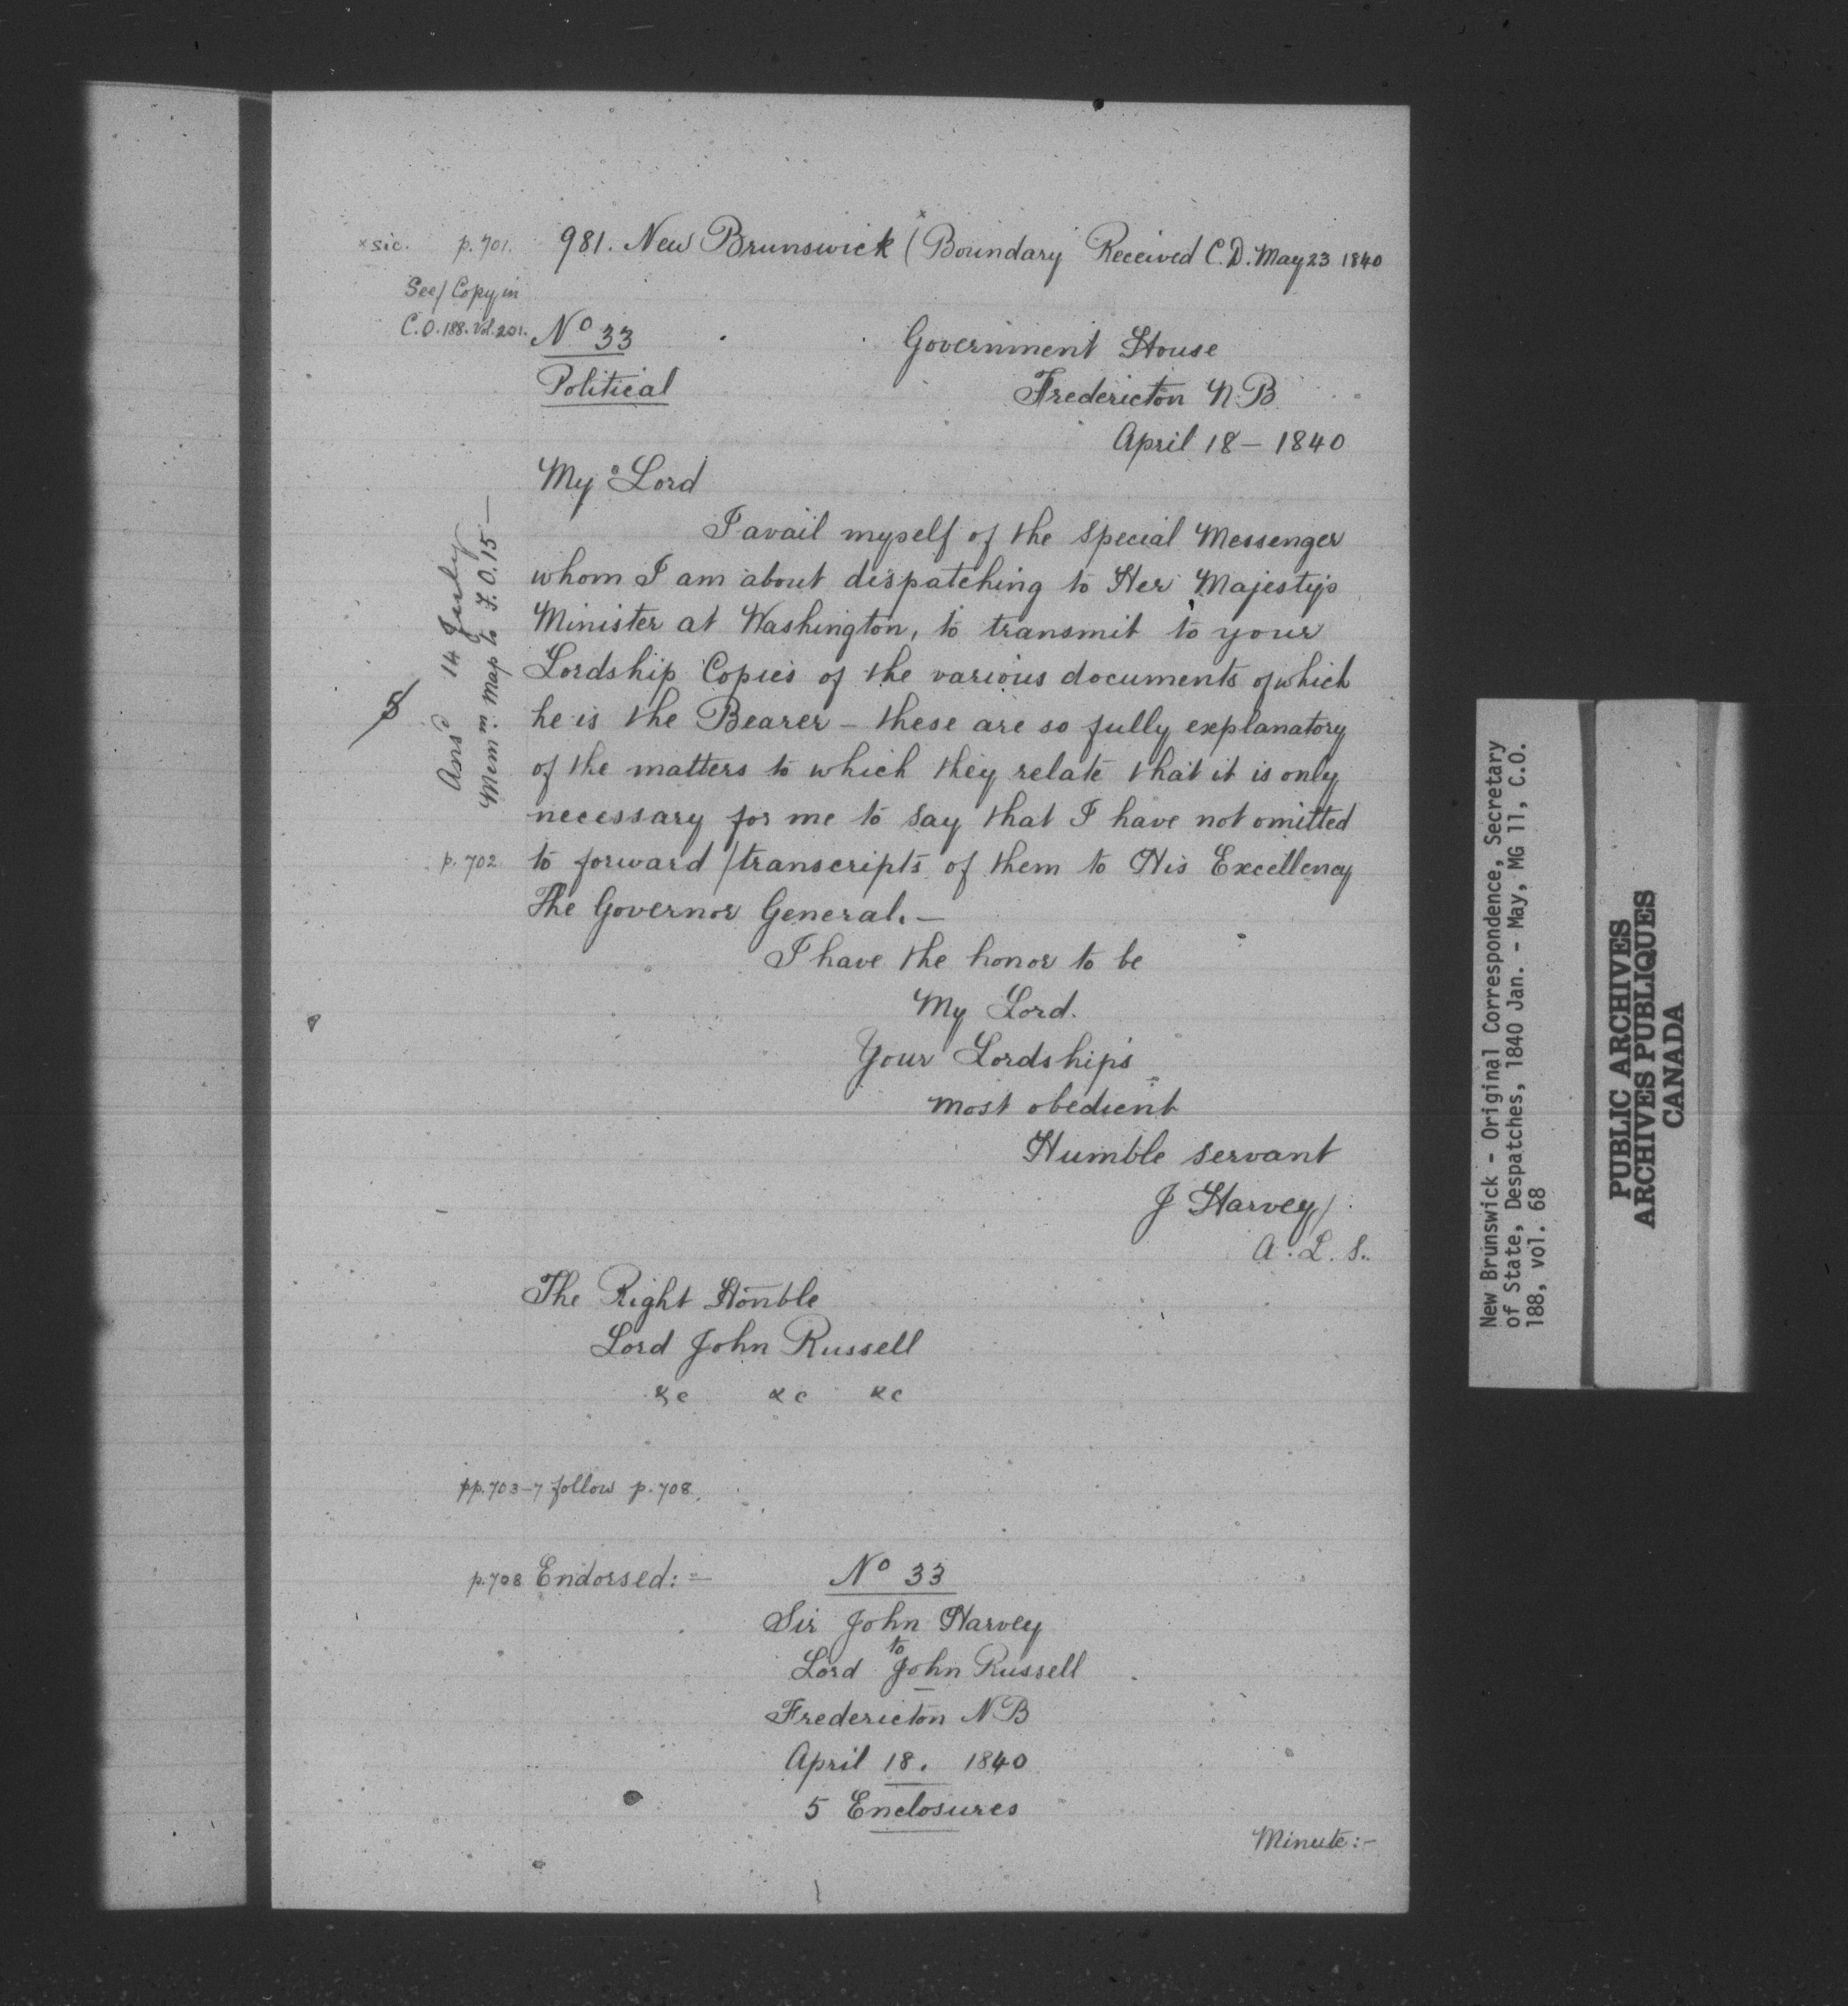 × sic. p. 701. 981. New Brunswick (Boundary× Received C.D. May 23 1840
See/ Copy in
C.O. 188. Vol. 201.
No 33
Political
Government House
Fredericton N.B.
April 18 – 1840
My Lord
I avail myself of the special Messenger
whom I am about dispatching to Her Majesty's
Minister at Washington, to transmit to your
Lordship Copies of the various documents of which
he is the Bearer – these are so fully explanatory
of the matters to which they relate that it is only
necessary for me to say that I have not omitted
p. 702 to forward / transcripts of them to His Excellency
The Governor General. –
Ansd 14 July
Memm: Map to F.O. 15 –
I have the honor to be
My Lord.
Your Lordship's
most obedient
Humble servant
J Harvey /
A. L. S.
The Right Honble
Lord John Russell
&c &c &c
pp. 703–7 follow p. 708.
p. 708 Endorsed: –
No 33
Sir John Harvey
to
Lord John Russell
Fredericton NB
April 18. 1840
5 Enclosures
Minute: –
New Brunswick - Original Correspondence, Secretary
of State, Despatches, 1840 Jan. - May, MG 11, C.O.
188, vol. 68
PUBLIC ARCHIVES
ARCHIVES PUBLIQUES
CANADA